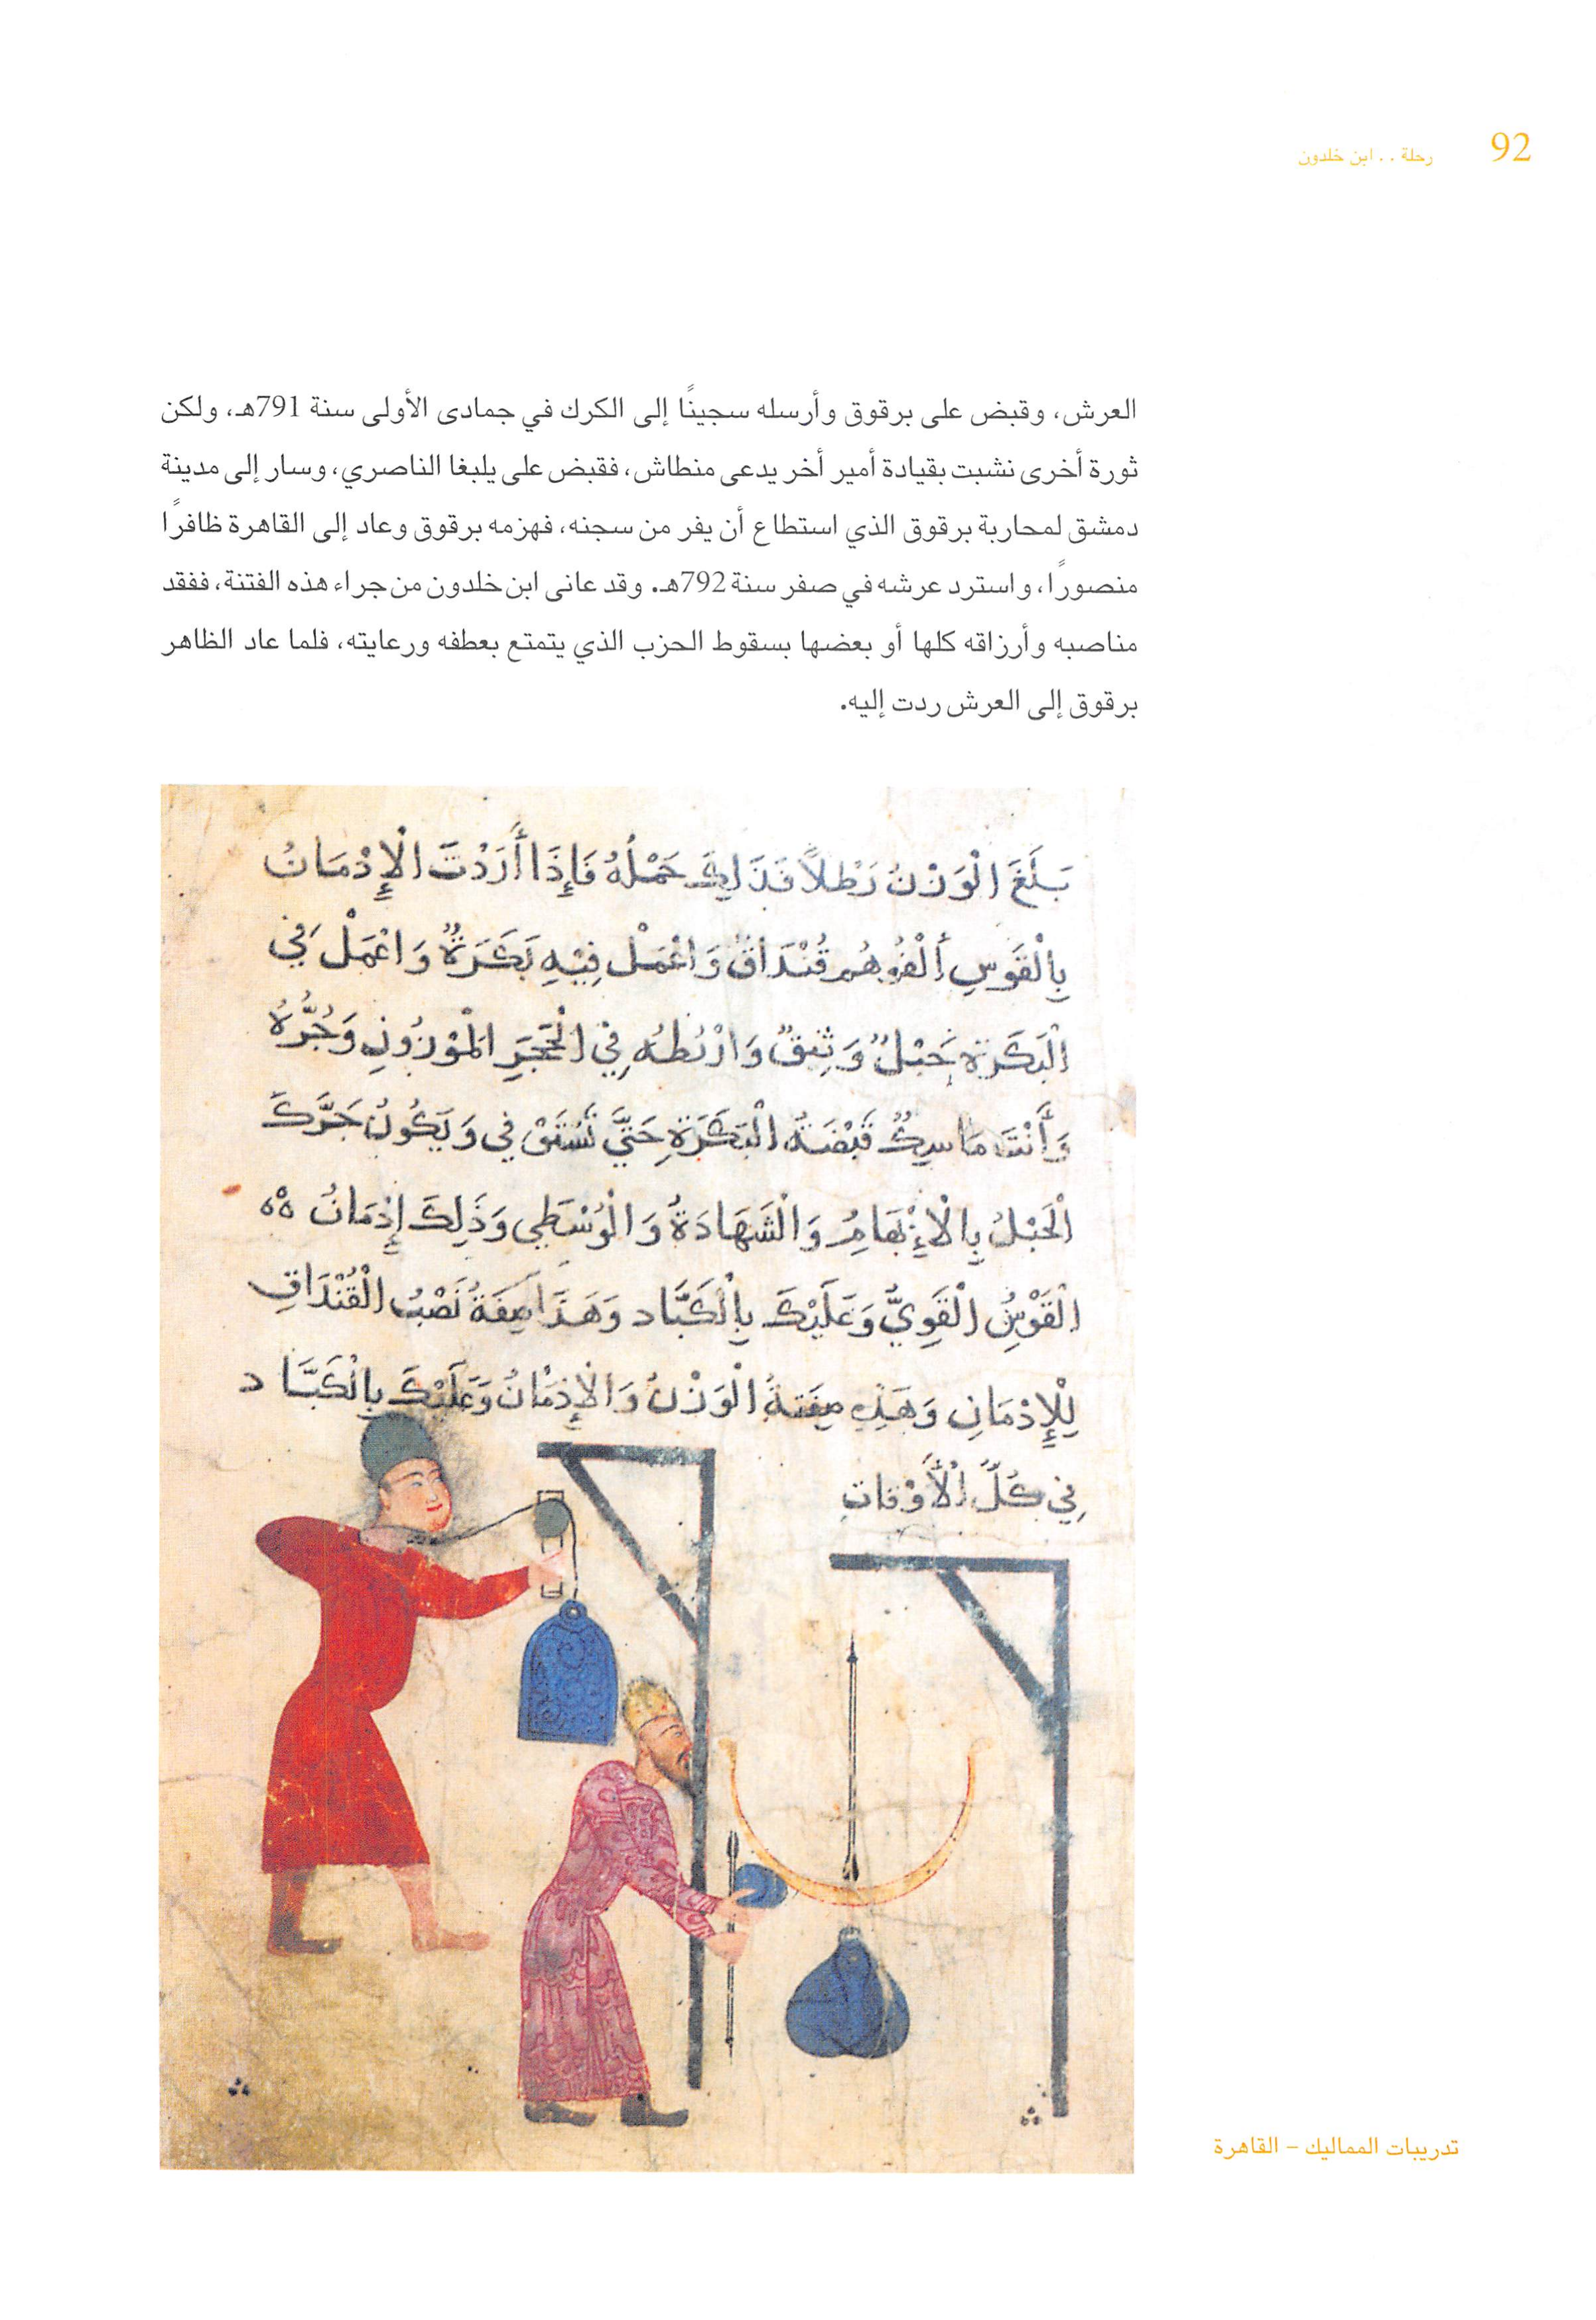 92
رحلة . . ابن خلدون
العرش، وقبض على برقوق وأرسله سجينًا إلى الكرك في جمادى الأولى سنة 791هـ، ولكن
ثورة أخرى نشبت بقيادة أمير أخر يدعى منطاش، فقبض على يلبغا الناصري، وسار إلى مدينة
دمشق لمحاربة برقوق الذي استطاع أن يفر من سجنه، فهزمه برقوق وعاد إلى القاهرة ظافرًا
منصورًا، واسترد عرشه في صفر سنة 792هـ. وقد عانى ابن خلدون من جراء هذه الفتنة، ففقد
مناصبه وأرزاقه كلها أو بعضها بسقوط الحزب الذي يتمتع بعطفه ورعايته، فلما عاد الظاهر
برقوق إلى العرش ردت إليه.
بَلَغَ الْوَزْنُ رَطْلاً فَذَلِكَ حَمْلُهُ فَإِذَا أَرَدْتَ الْإِدْمَانُ
بِالْقَوسِ قُنْدَاقٌ وَاعْمَلْ فِيْهِ بَكَرَةٌ وَاعْمَلْ فِي
الْبَكَرَةِ حَبْلٌ وَثِيقٌ وَارْبُطْهُ فِي الْحَجَرِ الْمَوْزُونِ وَجُرُّهُ
وَأَنْتَ مَاسِكٌ قَبْضَةُ الْبَكَرَةِ حَتَّى تَسْتَوْفِي وَيَكُونُ جَرَّكَ
الْحَبْلُ بِالْإِبْهَامِ وَالْشَهَادَةُ وَالْوُسْطَى وَذَلِكَ إِدْمَانُ
الْقَوْسُ الْقَوِيُّ وَعَلَيْكَ بِالْكَبَّاد وَهَذَا صِفَةُ نَصْبُ الْقُنْدَاقِ
لِلْإِدْمَانِ وَهَذِهِ صِفَةُ الْوَزْنُ وَالْإِدْمَانُ وَعَلَيْكَ بِالْكَبَّاد
فِي كُلِّ الْأَوْقَاتِ
تدريبات المماليك – القاهرة